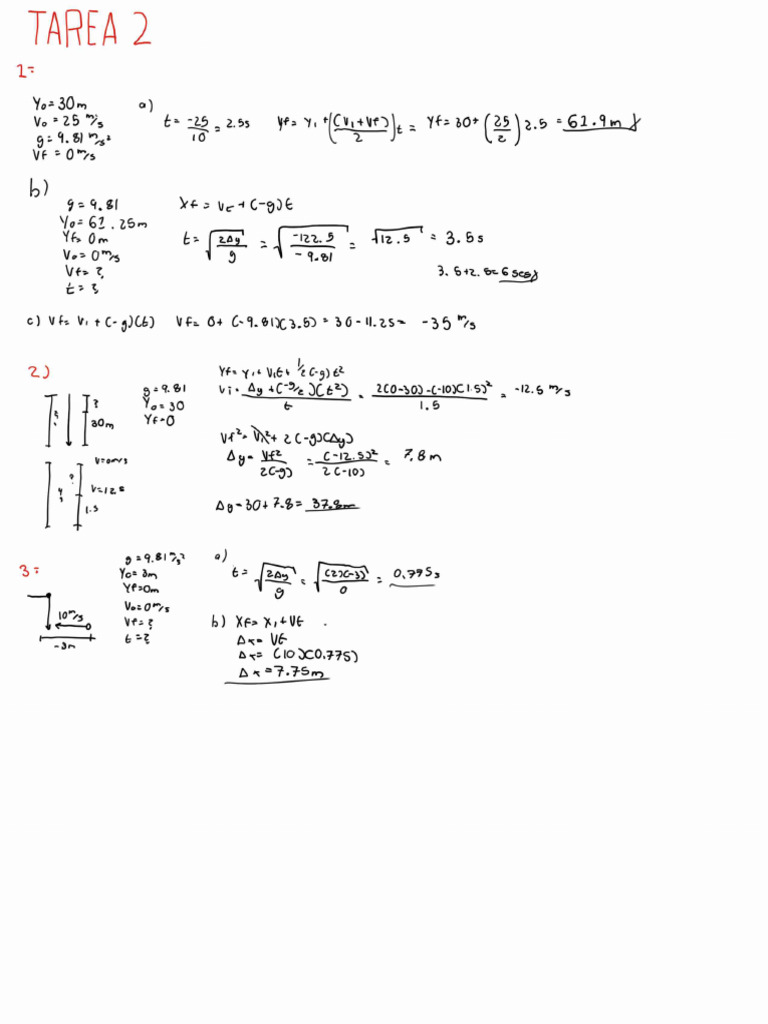 TAREA 2
1=
Yo = 30m
Vo = 25 m/s
g = 9.81 m/s²
Vf = 0 m/s
a) t = -25/10 = 2.5s   Yf = Y1 + ((V1 + Vf)/2)t = Yf = 30 + (25/2) 2.5 = 61.9m
b)
g = 9.81
Yo = 61.25m
Yf = 0m
Vo = 0 m/s
Vf = ?
t = ?
Xf = Vt + (-g)t
t = √(2Δy/g) = √(-122.5/-9.81) = √12.5 = 3.5s
3.5 + 2.5 = 6 seg
c) Vf = V1 + (-g)(t)   Vf = 0 + (-9.81)(3.5) = 30 - 11.25 = -35 m/s
2)
?
30m
V=0m/s
?
V=12.5
1.5
g = 9.81
Yo = 30
Yf = 0
Yf = Y1 + V1t + 1/2 (-g) t²
Vi = (Δy + (-g/2)(t²))/t = (2(0-30)-(-10)(1.5)²)/1.5 = -12.5 m/s
Vf² = V1² + 2(-g)(Δy)
Δy = Vf²/2(-g) = (-12.5)²/2(-10) = 7.8m
Δy = 30 + 7.8 = 37.8m
3=
10 m/s
-3m
g = 9.81 m/s²
Yo = 3m
Yf = 0m
Vo = 0 m/s
Vf = ?
t = ?
a)
t = √(2Δy/g) = √((2)(-3)/0) = 0.775s
b) Xf = X1 + Vt
Δx = Vt
Δx = (10)(0.775)
Δx = 7.75m